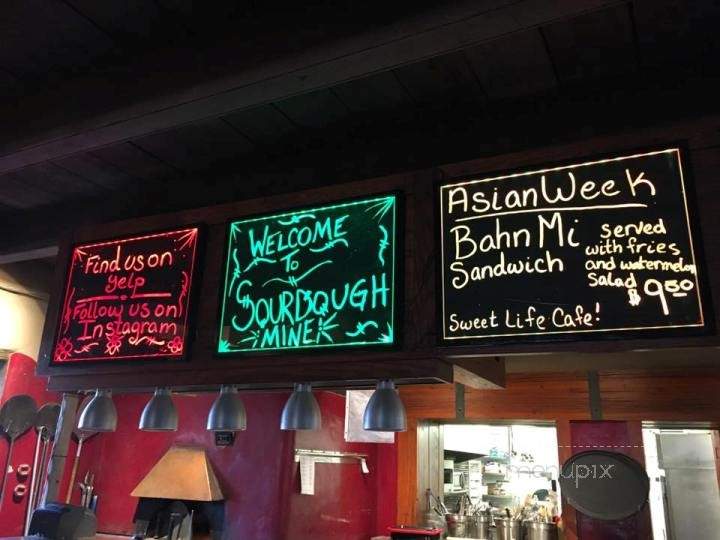 Find us on
yelp
Follow us on
Instagram
WELCOME
To
SOURDOUGH
MINE
Asian Week
Bahn Mi
Sandwich
served
with fries
and watermelon
Salad
$9.50
Sweet Life Cafe!
menupix